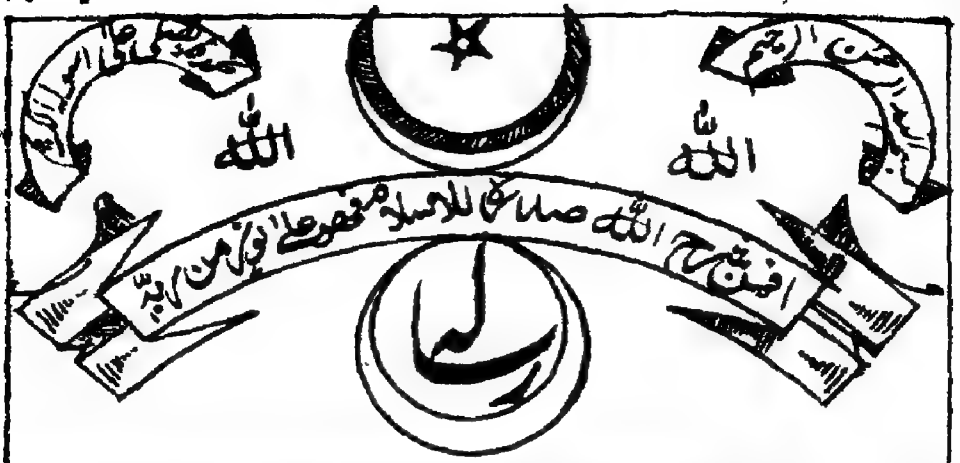 بسم الله الرحمن الرحيم
نحمده ونصلي على رسوله الكريم
الله
الله
افمن شرح الله صدره للاسلام فهو على نور من ربه
رساله